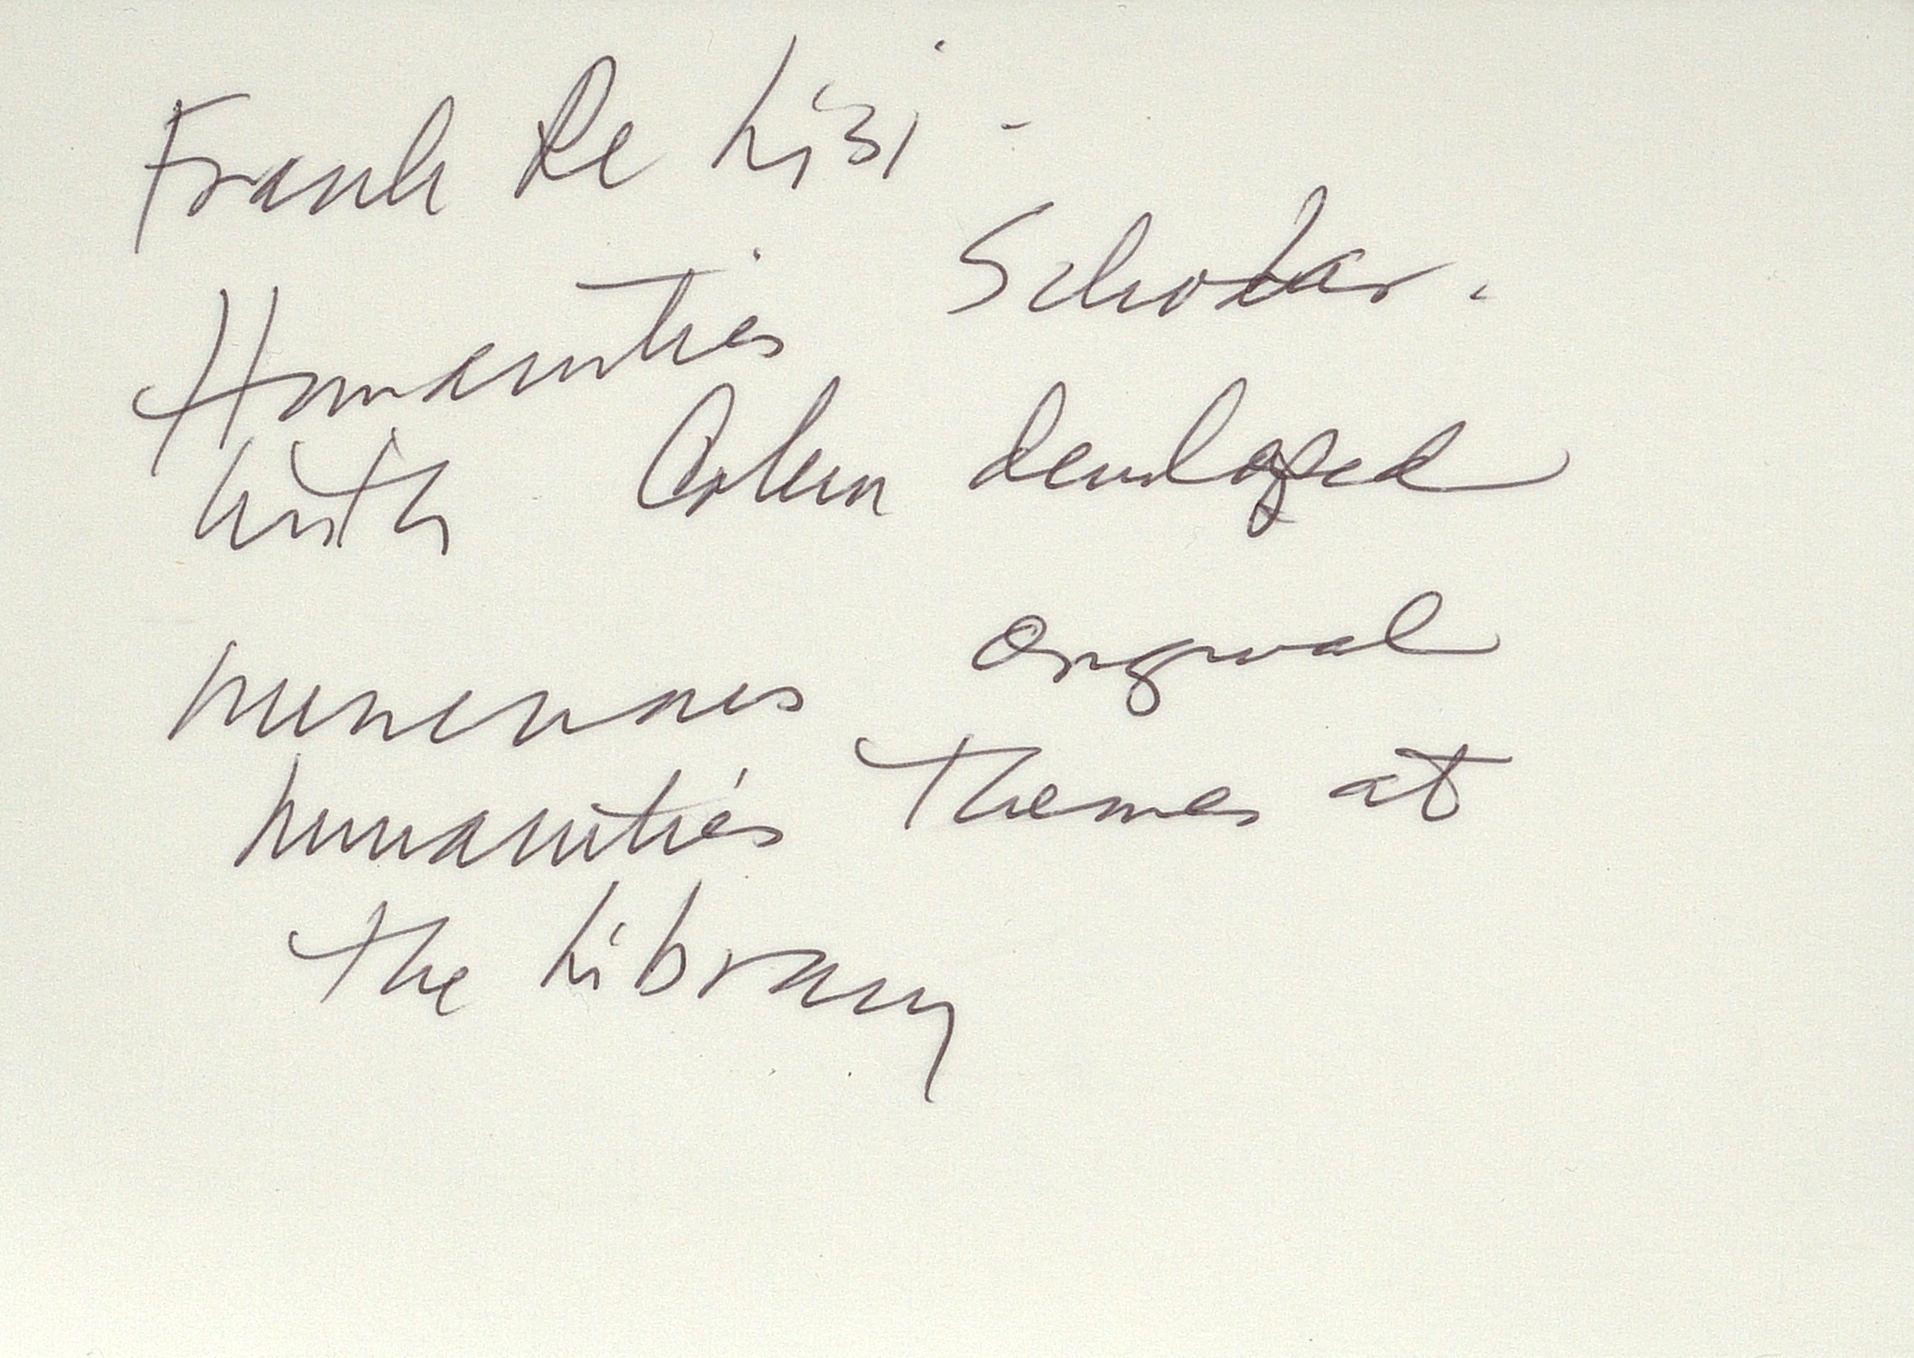 Frank De Lizi -
Humanities Scholar.
With Colen developed
numerous original
humanities themes at
the Library